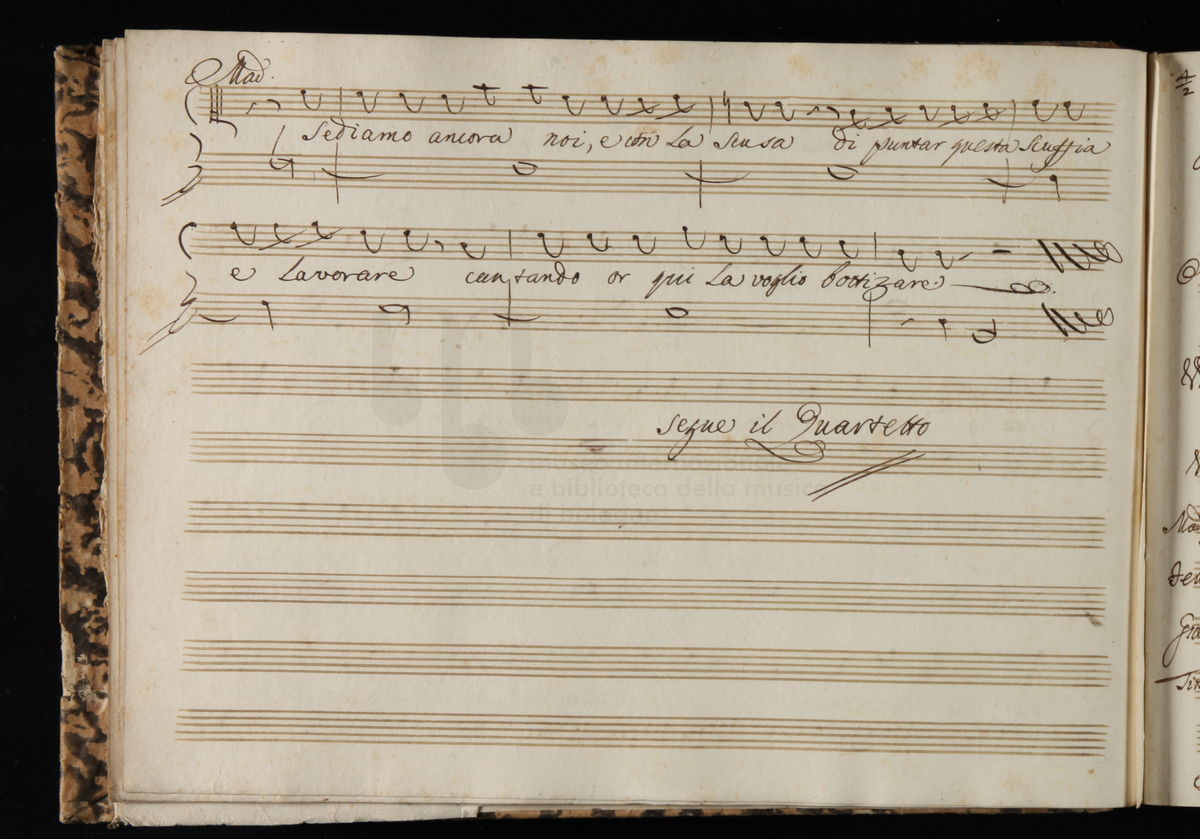 Mad.
Sediamo ancora noi, e con La scusa di puntar questa Scuffia
e Lavorare cantando or qui La voglio bottizare.
segue il Quartetto
museo internazionale
e biblioteca della musica
di bologna
4
2